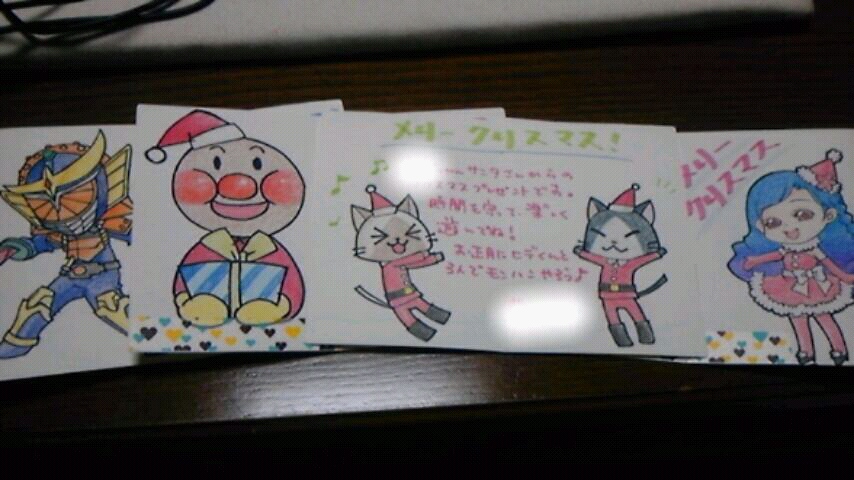 メリー クリスマス!
ちゃんサンタさんからの
スマスプレゼントです。
時間を守って、楽しく
遊んでね!
お正月にヒデくんと
3人でモンハンやろう♪
メリー
クリスマス